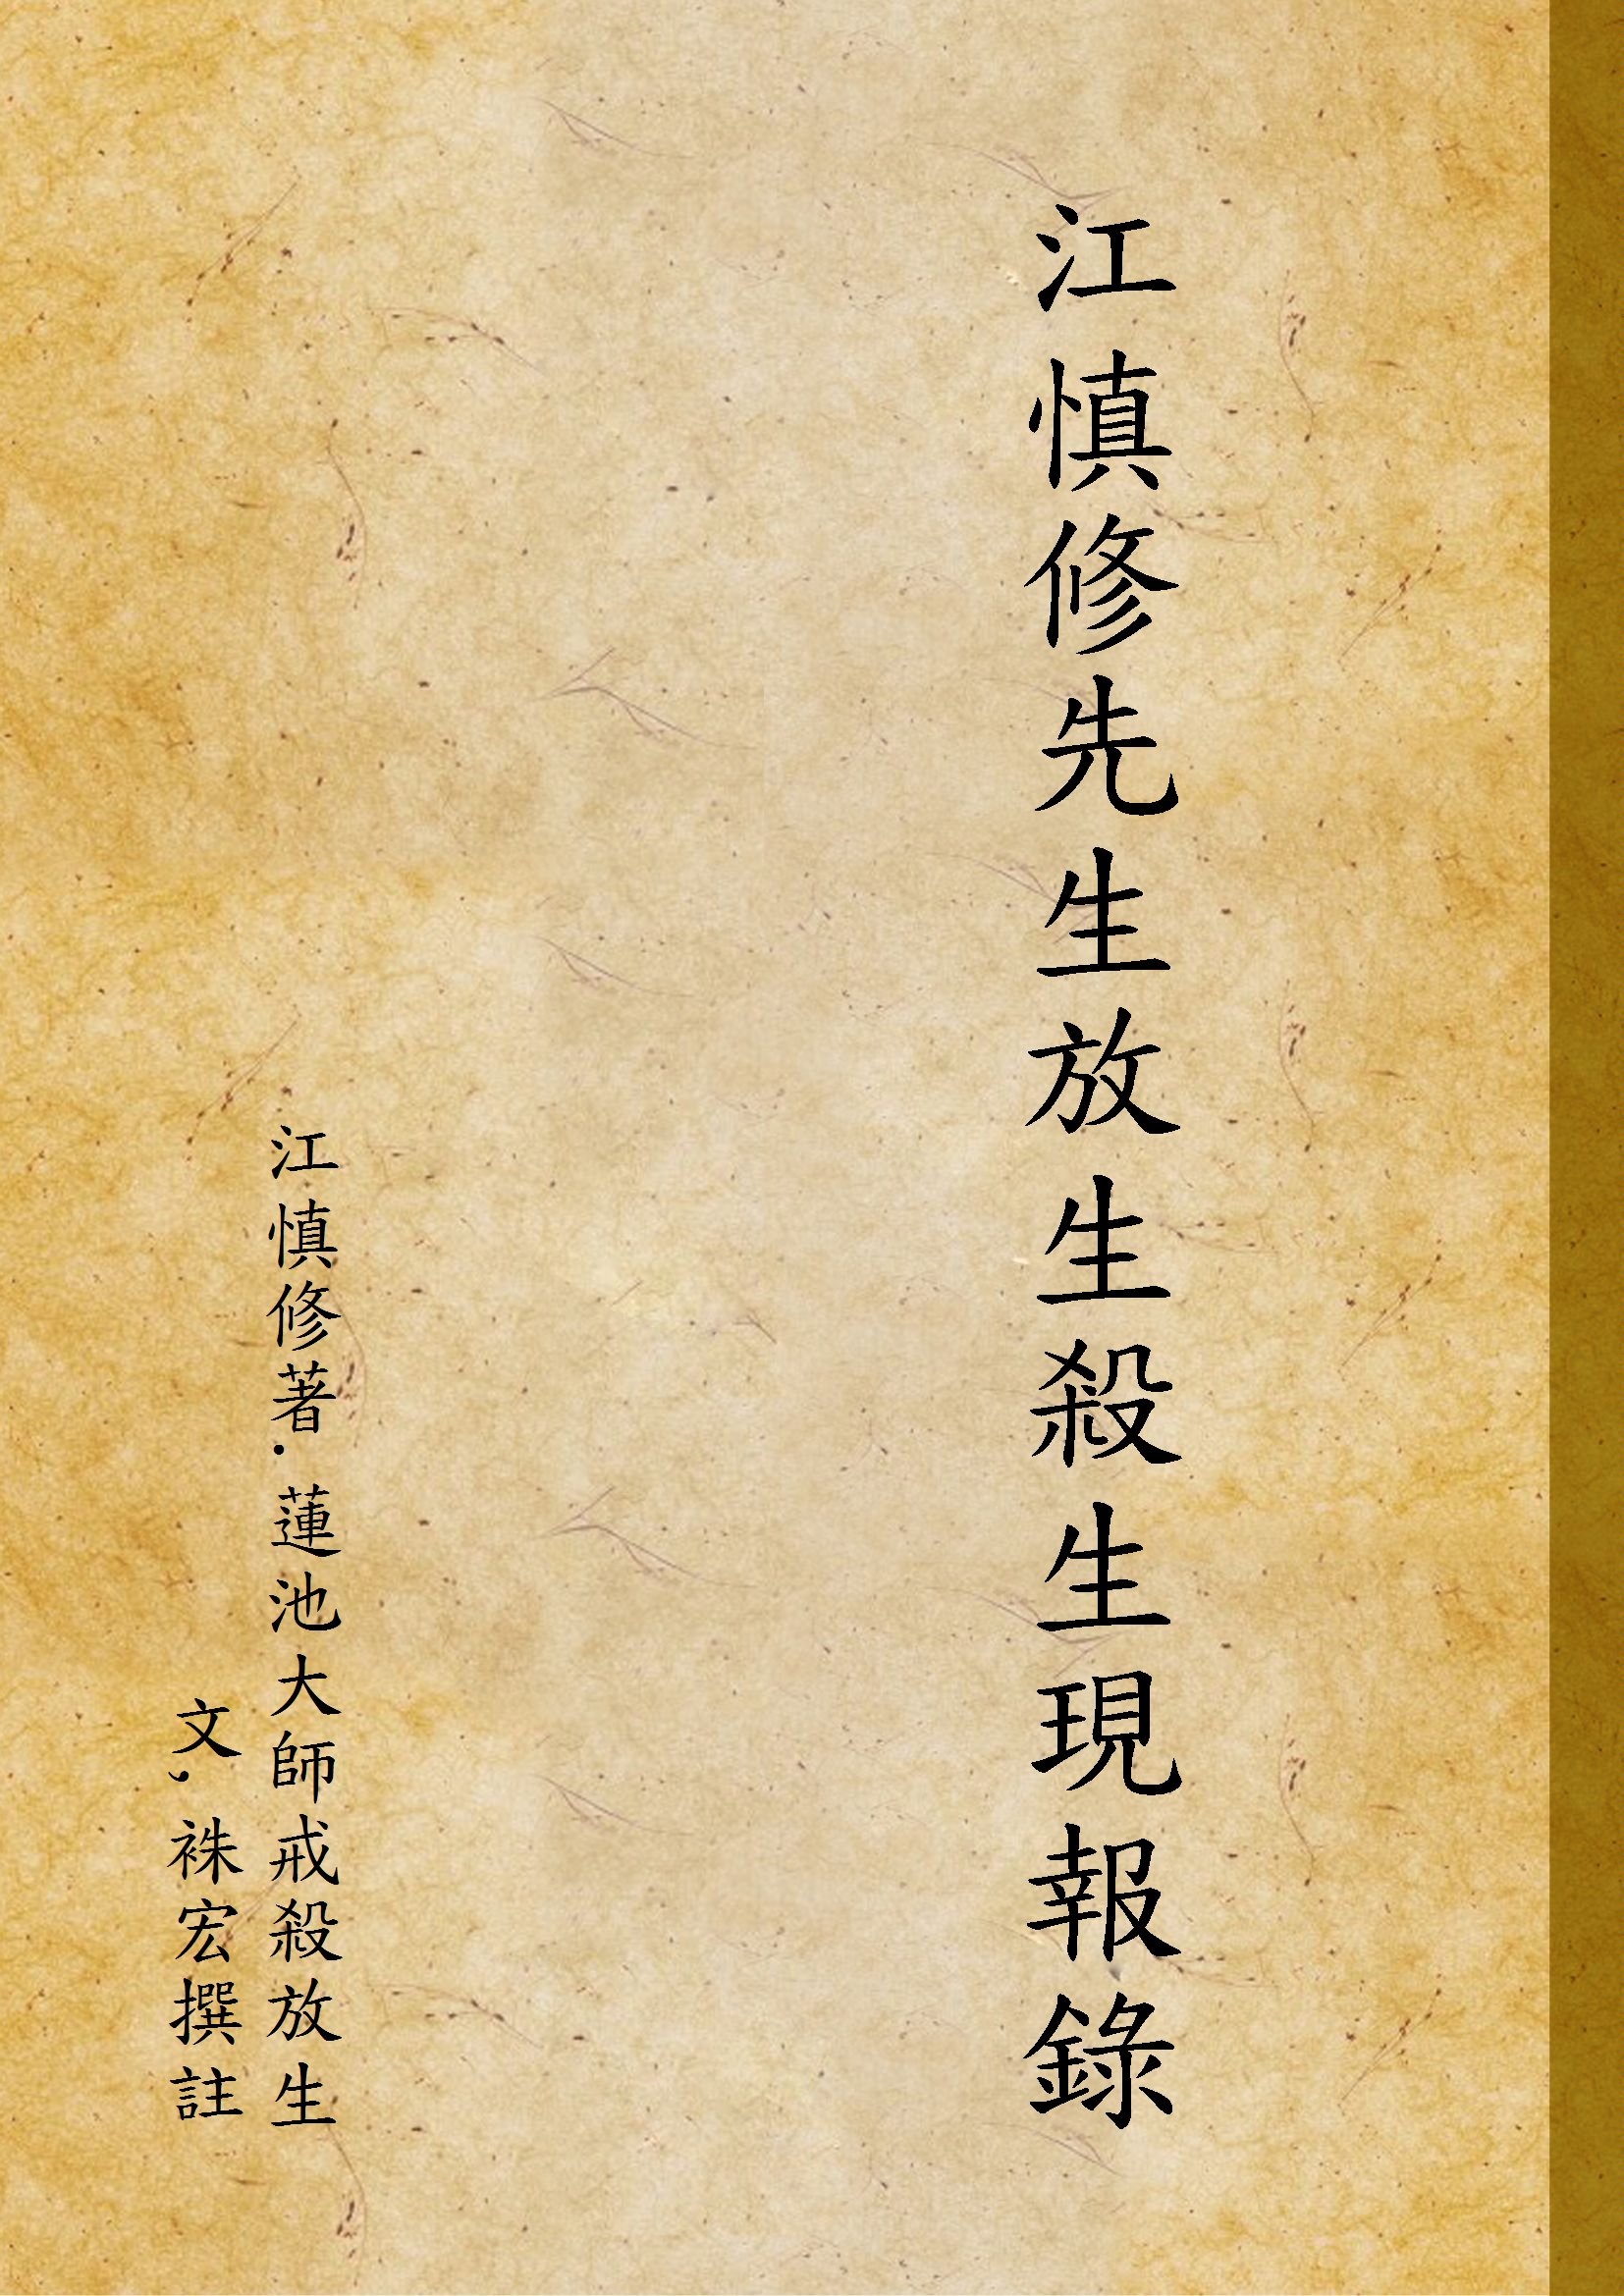 江慎修先生放生殺生現報錄
江慎修著.蓮池大師戒殺放生
文,袾宏撰註